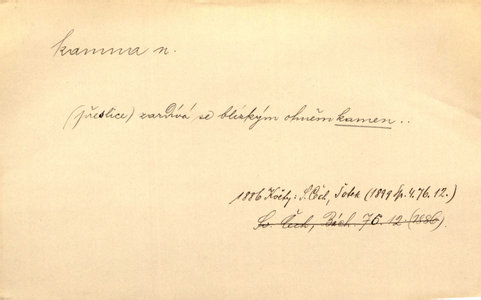 kamna n.
(přeslice) zardívá se blízkým ohněm kamen..
1886 Květy: S. Čech, Šotek (1899 Sp. 4. 76. 12.)
Sv. Čech, Bách. 76. 12 (1886).